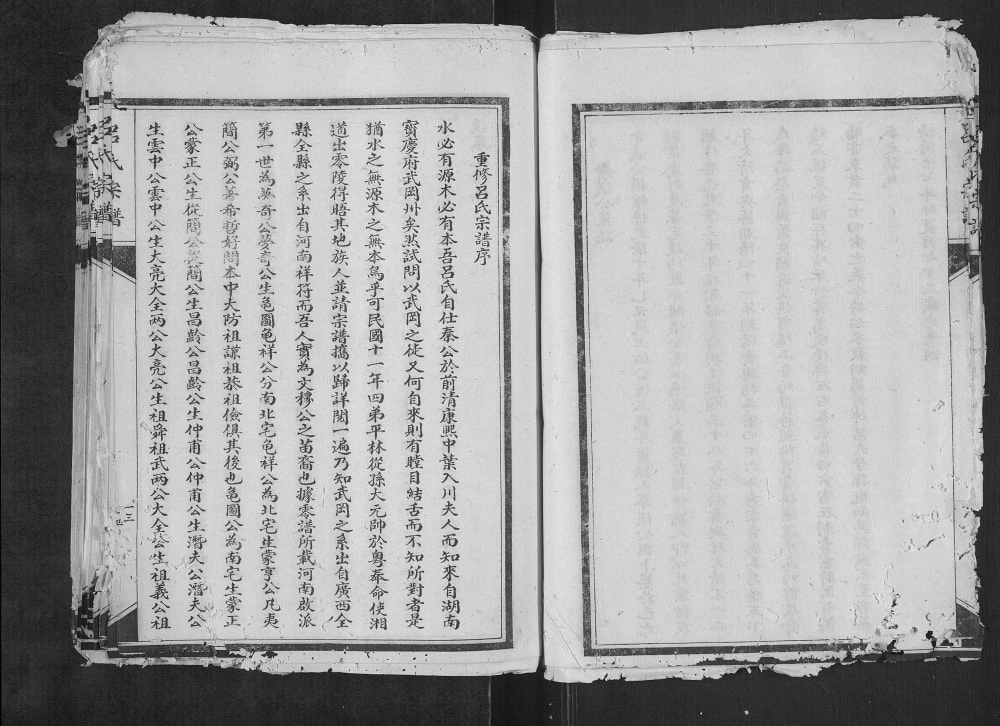 呂氏宗譜
重修呂氏宗譜序
水必有源木必有本吾呂氏自仕秦公於前清康熙中葉入川夫人而知來自湖南
寶慶府武岡州矣然試問以武岡之徒又何自來則有瞠目結舌而不知所對者是
猶水之無源木之無本烏乎可民國十一年四弟平林從孫大元帥於粵奉命使湘
道出零陵得晤其地族人並請宗譜攜以歸詳閱一遍乃知武岡之系出自廣西全
縣全縣之系出自河南祥符而吾人實為文穆公之苗裔也據零譜所載河南啟派
第一世為夢奇公夢奇公生龜圖龜祥公分南北宅龜祥公為北宅生蒙亨公凡夷
簡公弼公著希哲好問本中大防祖謙祖恭祖儉俱其後也龜圖公為南宅生蒙正
公蒙正公生從簡公從簡公生昌齡公昌齡公生仲甫公仲甫公生潛夫公潛夫公
生雲中公雲中公生大亮大全兩公大亮公生祖舜祖武兩公大全公生祖義公祖
呂氏宗譜